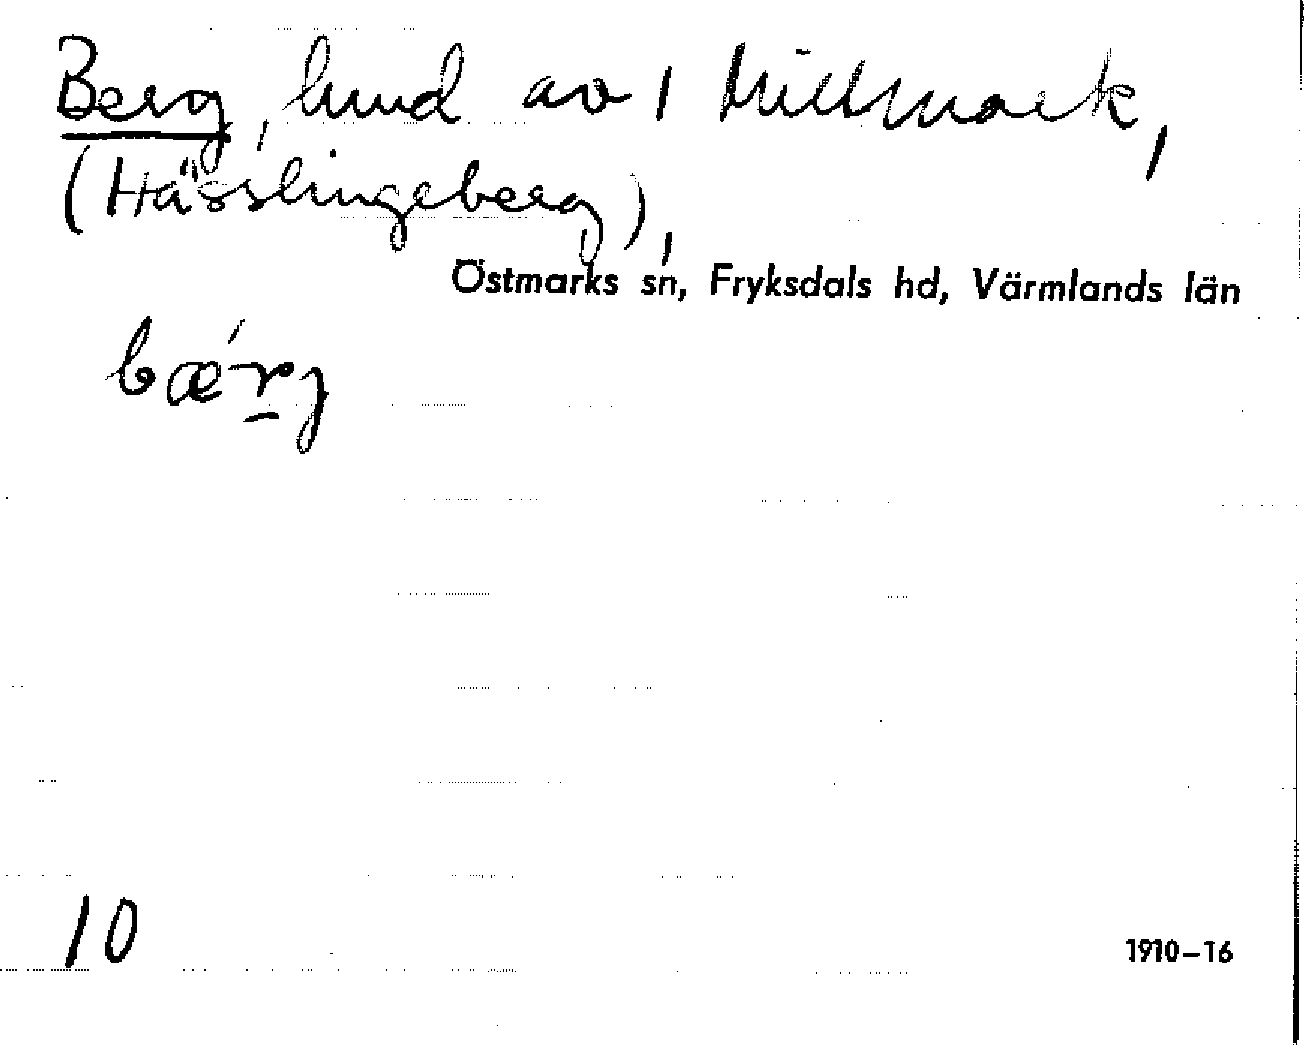 Berg, hmd av 1 Millmark,
(Hässlingeberg),
Östmarks sn, Fryksdals hd, Värmlands län
bæ´r̲j
10
1910–16